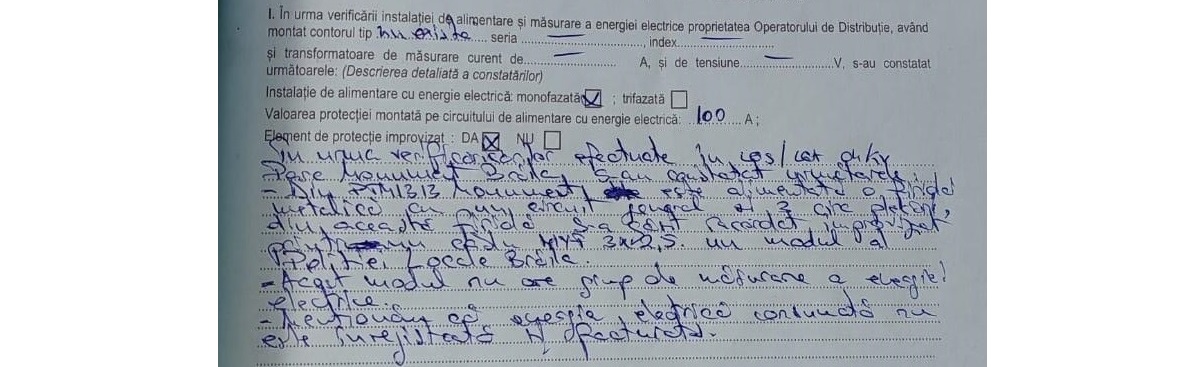 I. În urma verificării instalației de alimentare și măsurare a energiei electrice proprietatea Operatorului de Distribuție, având
montat contorul tip nu exista seria — , index —
și transformatoare de măsurare curent de — A, și de tensiune — V, s-au constatat
următoarele: (Descrierea detaliată a constatărilor)
Instalație de alimentare cu energie electrică: monofazată ☑ ; trifazată ☐
Valoarea protecției montată pe circuitului de alimentare cu energie electrică: 100 A ;
Element de protecție improvizat : DA ☒ NU ☐
În urma verificărilor efectuate în
Monument Brăila, s-au constatat următoarele:
- Din PTM1313 Monument, este alimentată o firidă
metalică cu un circuit general și 3 circ plecări,
din această firidă s-a racordat improvizat
printr-un cablu MYYM 3x2,5 un modul al
Poliției Locale Brăila.
- Acest modul nu are grup de măsurare a energiei
electrice.
- Menționăm că energia electrică consumată nu
este înregistrată și facturată.